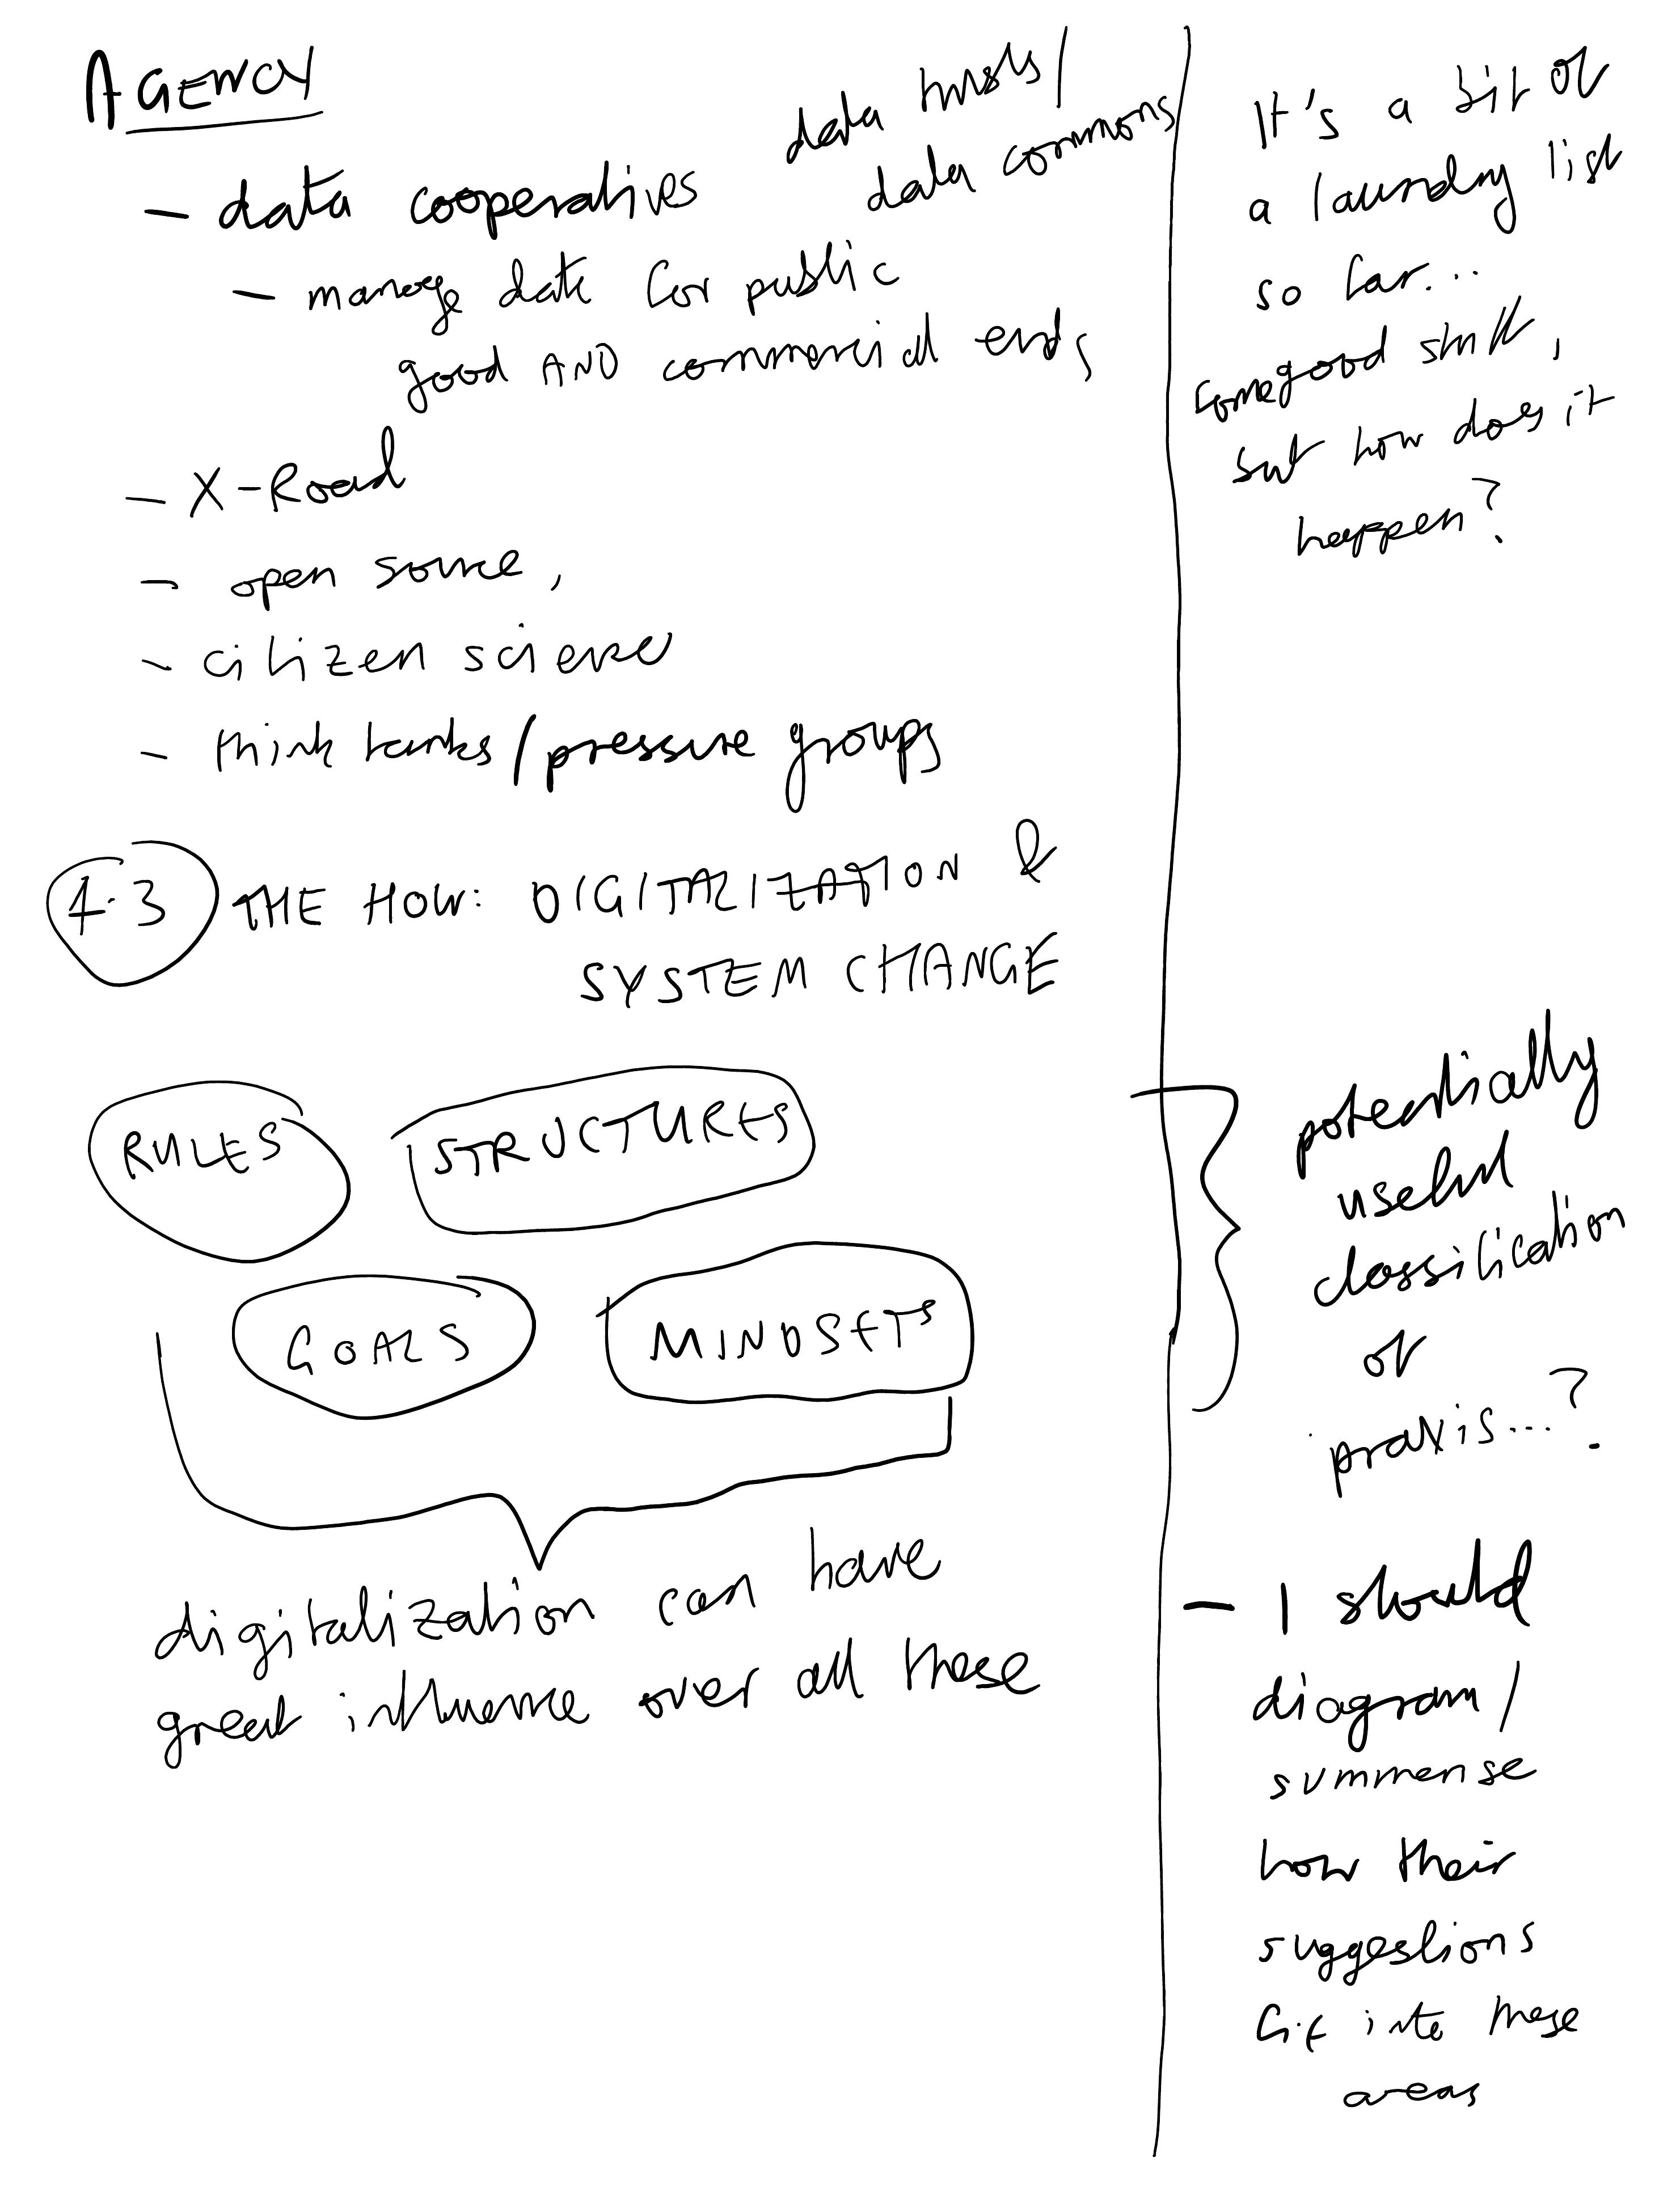 AGENCY
data trusts/
data commons
- data cooperatives
- manage data for public
good AND commercial ends
- X-Road
- open source,
- citizen science
- think tanks/pressure groups
4.3 THE HOW: DIGITALIZATION &
SYSTEM CHANGE
RULES
STRUCTURES
GOALS
MINDSETS
digitalization can have
great influence over all these
It's a bit of
a laundry list
so far...
some good stuff,
but how does it
happen?
potentially
useful
classification
of
praxis...?
- I should
diagram/
summarise
how their
suggestions
fit into these
areas